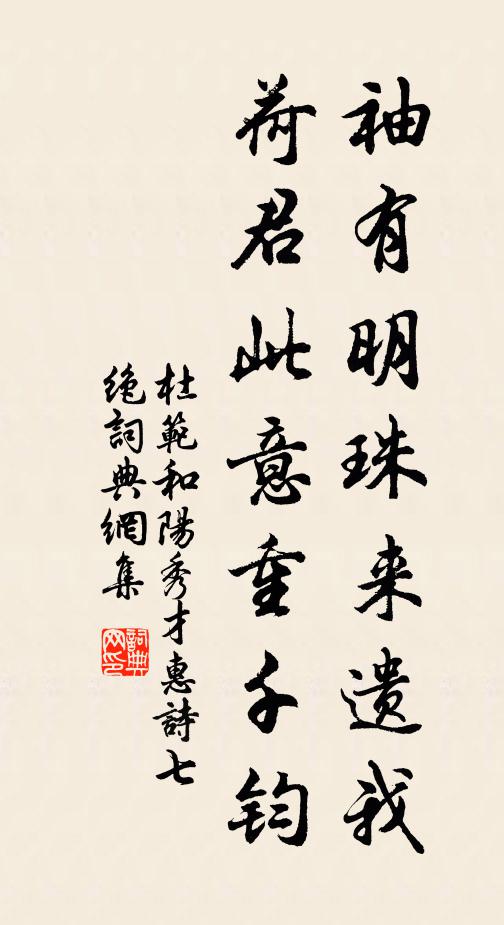 袖有明珠来遗我
荷君此意重千钧
杜範和陽秀才惠詩七
绝詞典網集
詞典网印